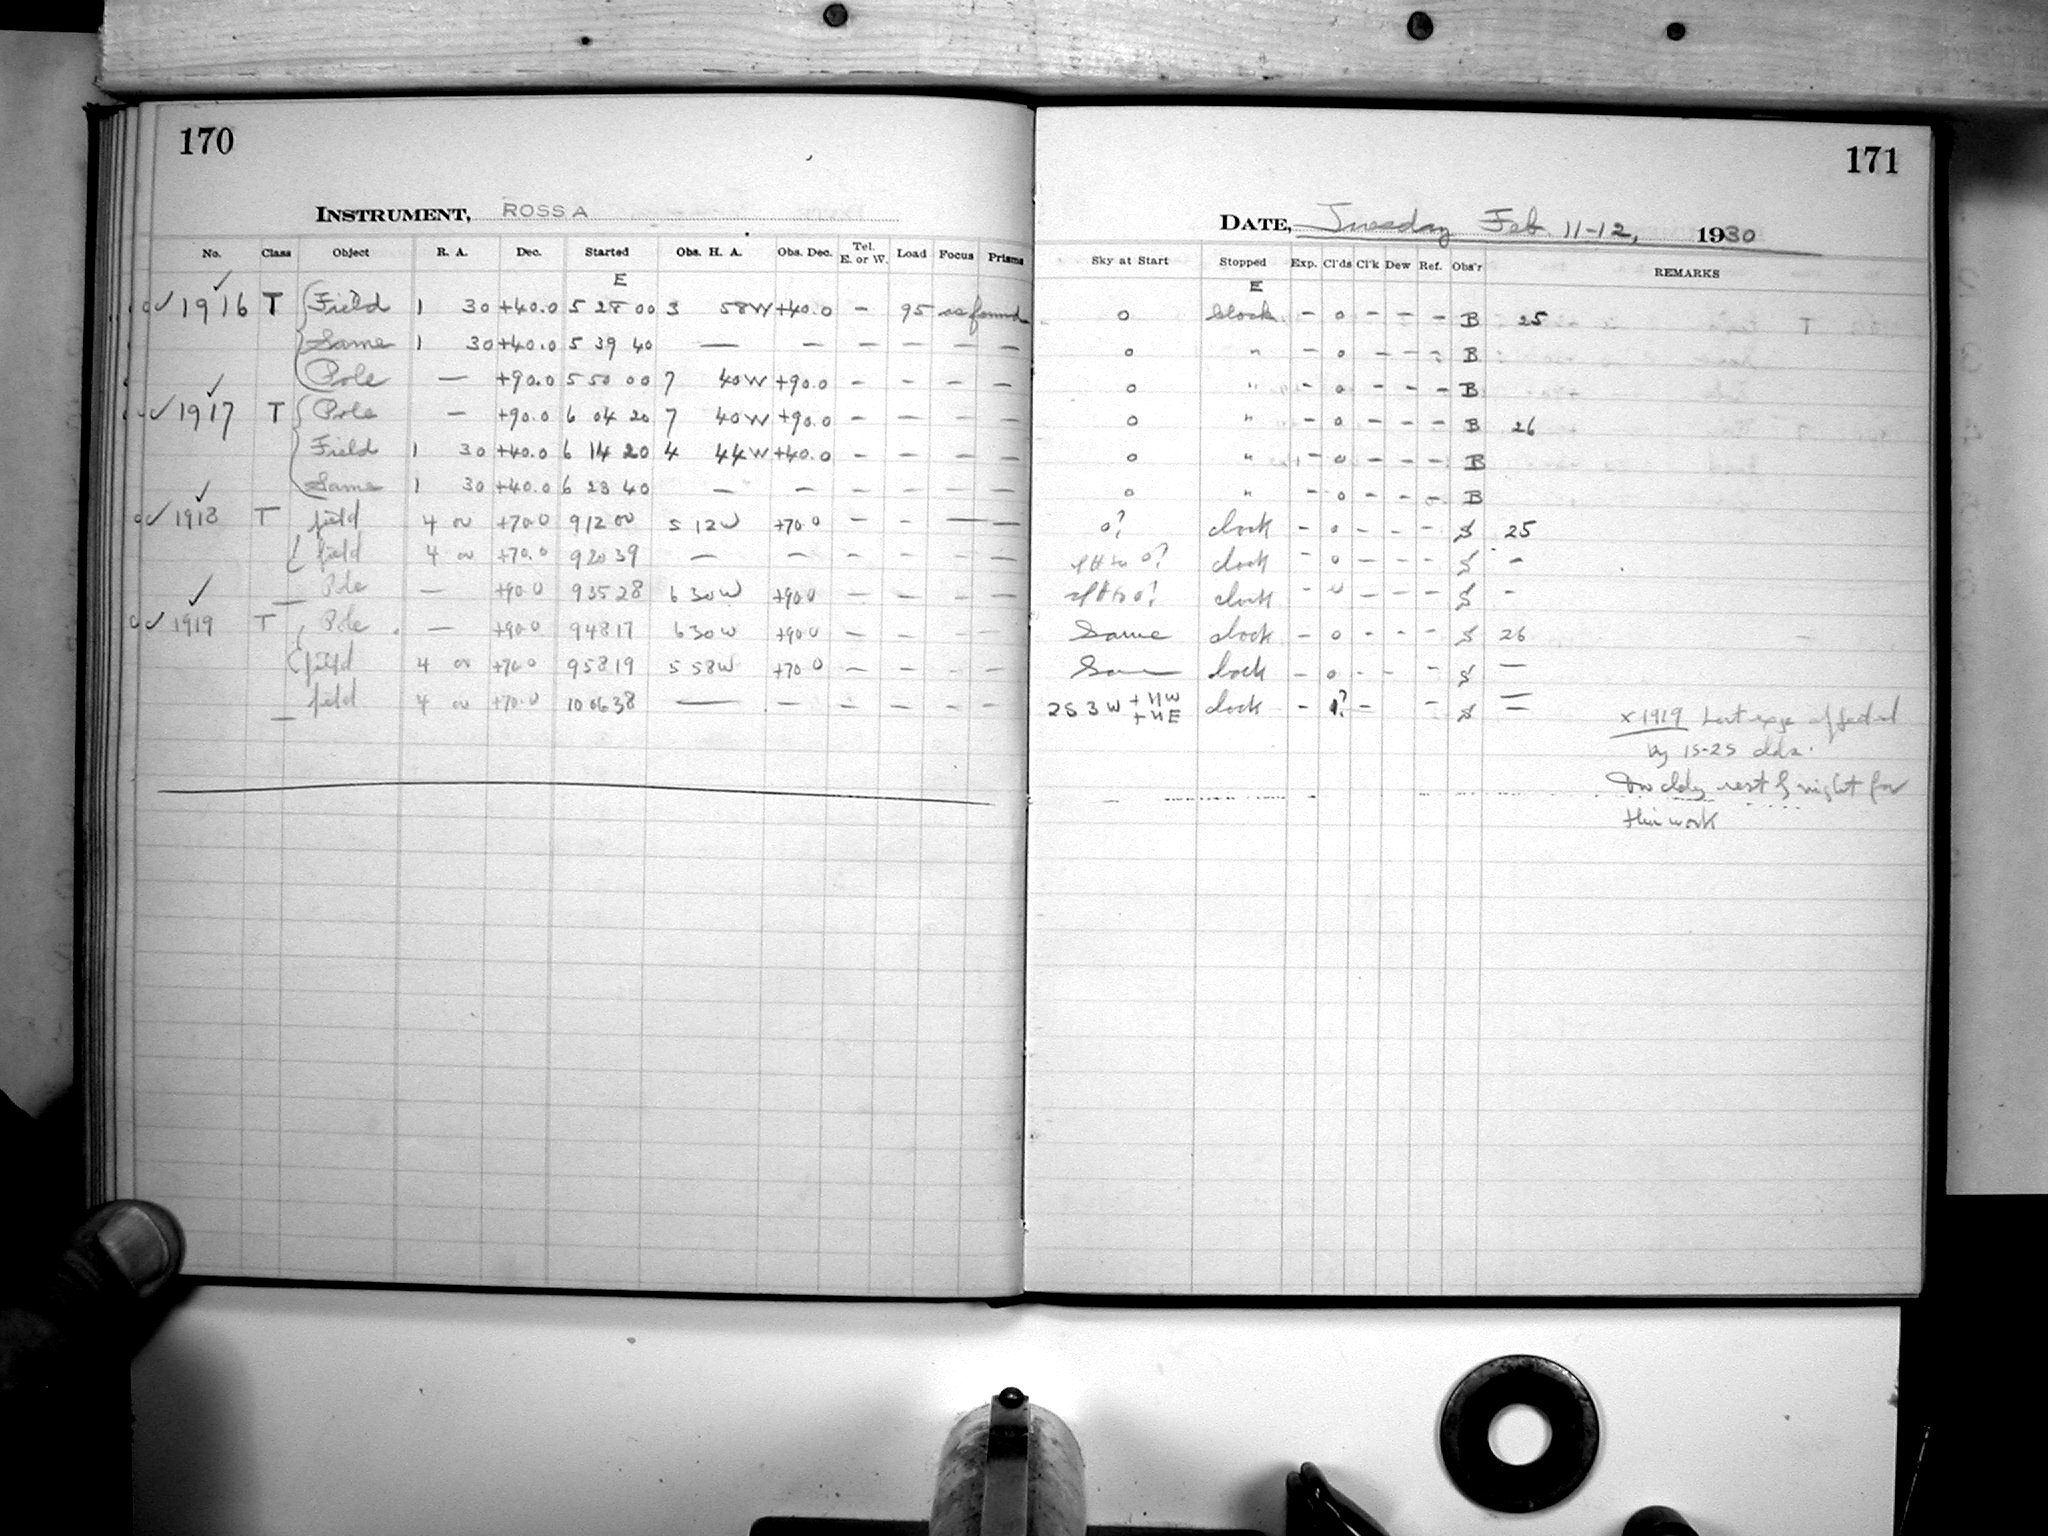 170
INSTRUMENT, ROSS A
No. Class Object R. A. Dec. Started Obs. H. A. Obs. Dec. Tel. E. or W. Load Focus Prisms
E
✓ 1916 T Field 1 30 +40.0 5 28 00 3 58W +40.0 — 95 as found
Same 1 30 +40.0 5 39 40 — — — — — —
Pole — +90.0 5 50 00 7 40W +90.0 — — — —
✓ 1917 T Pole — +90.0 6 04 20 7 40W +90.0 — — — —
Field 1 30 +40.0 6 14 20 4 44W +40.0 — — — —
Same 1 30 +40.0 6 23 40 — — — — — —
✓ 1918 T field 4 00 +70.0 9 12 00 5 12W +70.0 — — — —
field 4 00 +70.0 9 20 39 — — — — — —
Pole — +90.0 9 35 28 6 30W +90.0 — — — —
✓ 1919 T Pole — +90.0 9 48 17 6 30W +90.0 — — — —
field 4 00 +70.0 9 58 19 5 58W +70.0 — — — —
field 4 00 +70.0 10 06 38 — — — — — —
171
DATE, Tuesday Feb. 11-12, 1930
Sky at Start Stopped Exp. Cl'ds Cl'k Dew Ref. Obs'r REMARKS
E
0 clock — 0 — — — B 25
0 " — 0 — — — B
0 " — 0 — — — B
0 " — 0 — — — B 26
0 " — 0 — — — B
0 " — 0 — — — B
0? clock — 0 — — — S 25
0? clock — 0 — — — S —
0? clock — 0 — — — S —
Same clock — 0 — — — S 26
Same clock — 0 — — — S —
2S 3W + NW + NE clock — 1? — — S —
x 1919 Last expo affected
by 1S-2S clds.
Too cldy rest of night for
this work